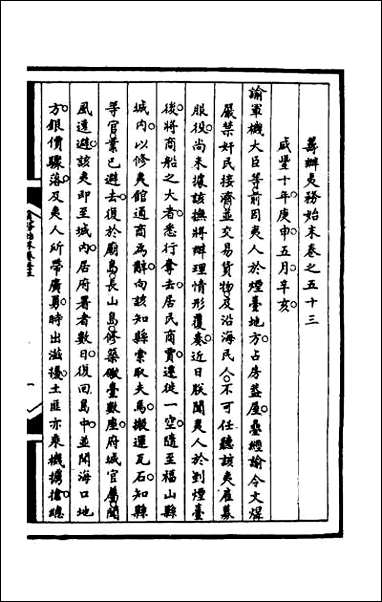 籌辦夷務始末卷之五十三
咸豐十年庚申五月辛亥
諭軍機大臣等前因夷人於煙臺地方占房蓋屋疊經諭令文煜
嚴禁奸民接濟並交易貨物及沿海民人不可任聽該夷雇募
服役尚未據該撫將辦理情形覆奏近日朕聞夷人於到煙臺
後將商船之大者悉行奪去居民商賈遷徙一空隨至福山縣
城內以修夷館通商為辭向該知縣索取夫馬搬運瓦石知縣
等官業已避去復於廟島長山島修築礮臺數座府城官屬聞
風遠避該夷即至城內居府署者數日復回島中並聞海口地
方銀價驟落及夷人所帶廣勇時出滋擾土匪亦乘機擄搶總